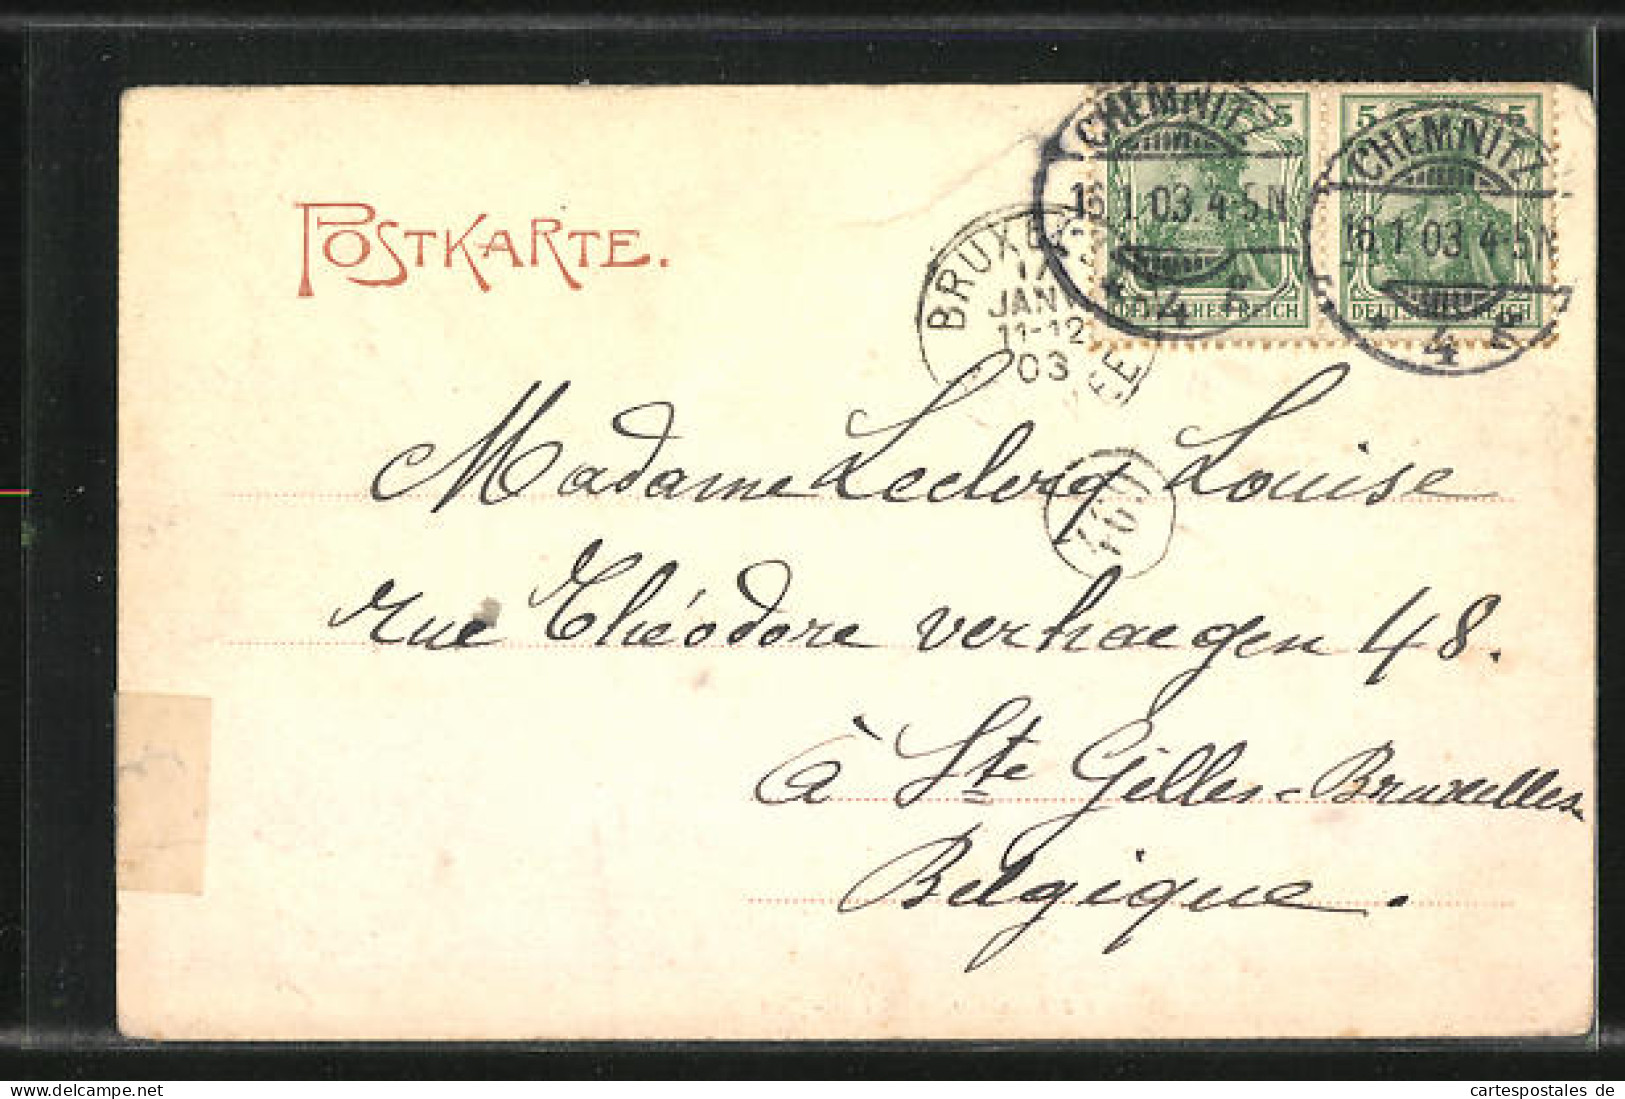 POSTKARTE.
5 5 5
DEUTSCHES REICH
DEUTSCHES REICH
CHEMNITZ
1.03.4-5N
* 4
CHEMNITZ
16.1.03.4-5N
* 4
BRUXE
17
JAN
11-12
03
Madame Leclerq Louise
rue Théodore verhaegen 48.
à Ste Gilles-Bruxelles
Belgique.
cartespostales de